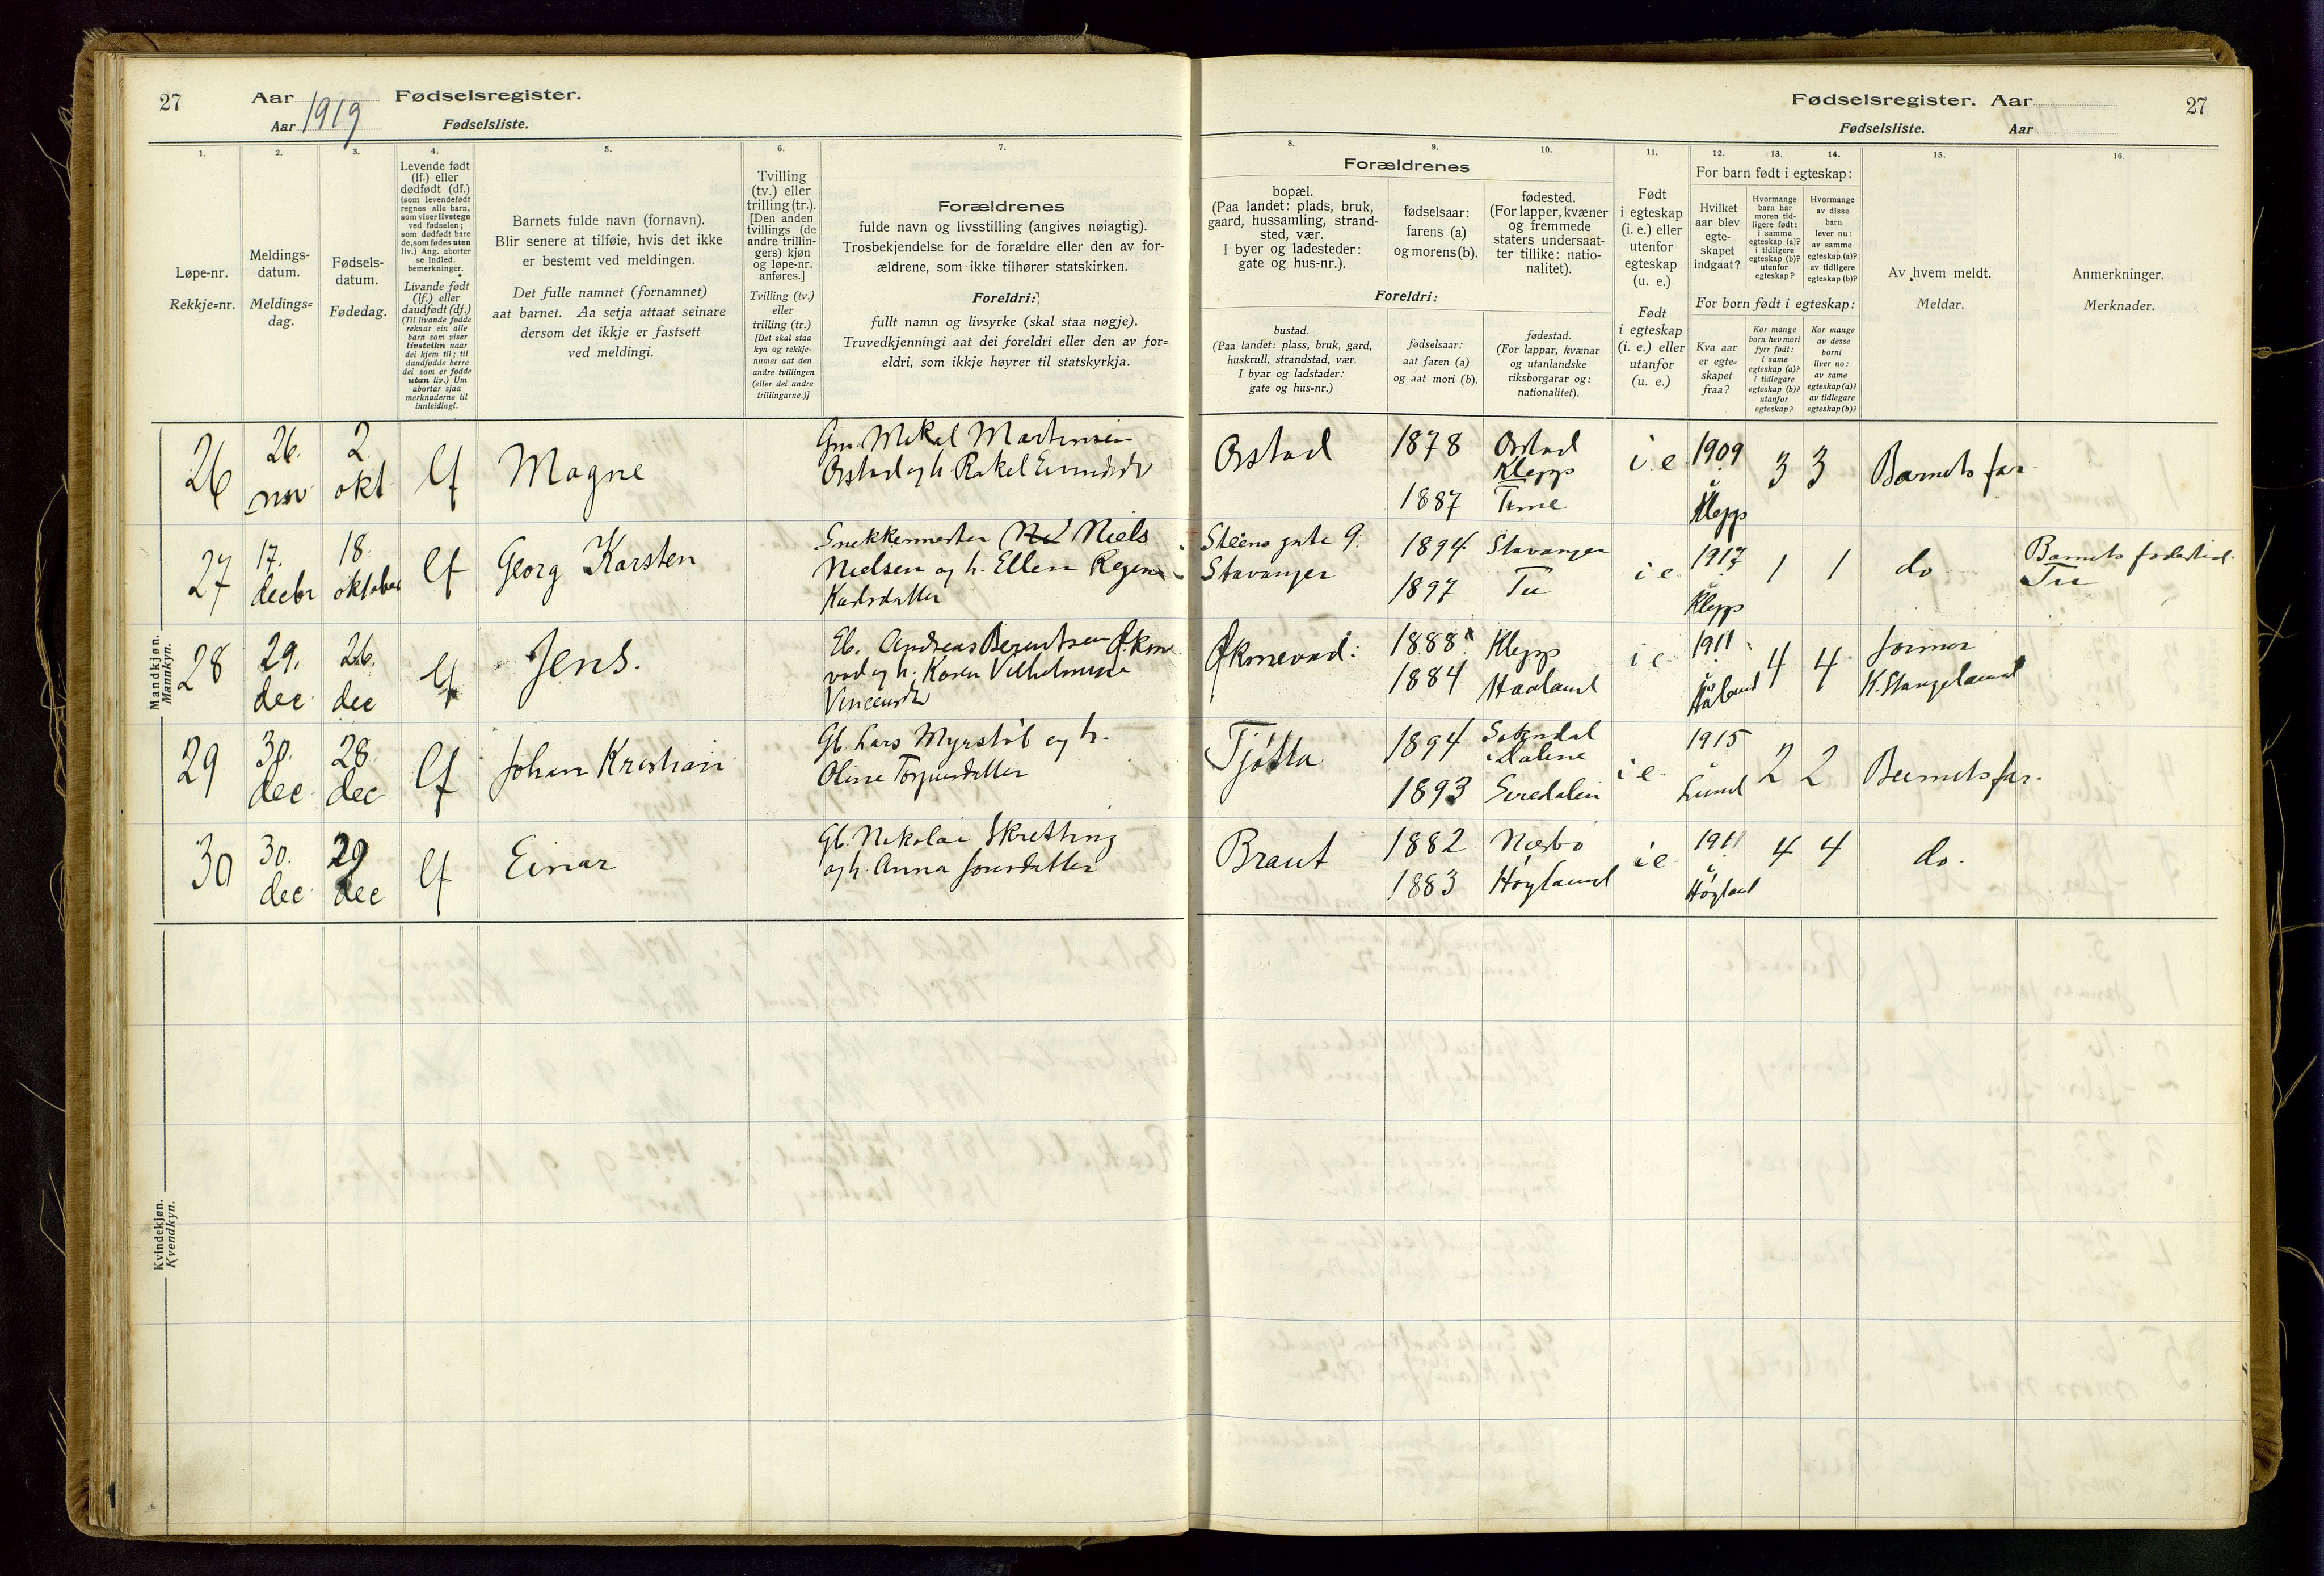 27 Aar 1919 Fødselsregister.
Aar Fødselsliste.
Fødselsregister. Aar 27
Fødselsliste. Aar
1. 2. 3. 4. 5. 6. 7. 8. 9. 10. 11. 12. 13. 14. 15. 16.
Løpe-nr.
Rekkje=nr.
Meldings-
datum.
Meldings=
dag.
Fødsels-
datum.
Fødedag.
Levende født
(lf.) eller
dødfødt (df.)
(som levendefødt
regnes alle barn,
som viser livstegn
ved fødselen;
som dødfødt bare
de, som fødes uten
liv.) Ang. aborter
se indled.
bemerkninger.
Livande født
(lf.) eller
daudfødt (df.)
(Til livande fødde
reknar ein alle
barn som viser
livsteikn naar
dei kjem til; til
daudfødde berre
dei som er fødde
utan liv.) Um
abortar sjaa
merknaderne til
innleidingi.
Barnets fulde navn (fornavn).
Blir senere at tilføie, hvis det ikke
er bestemt ved meldingen.
Det fulle namnet (fornamnet)
aat barnet. Aa setja attaat seinare
dersom det ikkje er fastsett
ved meldingi.
Tvilling
(tv.) eller
trilling (tr.).
[Den anden
tvillings (de
andre trillin-
gers) kjøn
og løpe-nr.
anføres.]
Tvilling (tv.)
eller
trilling (tr.)
[Det skal staa
kyn og rekkje-
numer aat den
andre tvillingen
(eller dei andre
trillingarne.)]
Forældrenes
fulde navn og livsstilling (angives nøiagtig).
Trosbekjendelse for de forældre eller den av for-
ældrene, som ikke tilhører statskirken.
Foreldri:
fullt namn og livsyrke (skal staa nøgje).
Truvedkjenningi aat dei foreldri eller den av for=
eldri, som ikkje høyrer til statskyrkja.
Forældrenes
bopæl.
(Paa landet: plads, bruk,
gaard, hussamling, strand-
sted, vær.
I byer og ladesteder:
gate og hus-nr.).
fødselsaar:
farens (a)
og morens (b).
fødested.
(For lapper, kvæner
og fremmede
staters undersaat-
ter tillike: natio-
nalitet).
Foreldri:
bustad.
(Paa landet: plass, bruk, gard,
huskrull, strandstad, vær.
I byar og ladstader:
gate og hus=nr.)
fødselsaar:
aat faren (a)
og aat mori (b).
fødestad.
(For lappar, kvænar
og utanlandske
riksborgarar og:
nationalitet).
Født
i egteskap
(i. e.) eller
utenfor
egteskap
(u. e.)
Født
i egteskap
(i. e.) eller
utanfor
(u. e.)
For barn født i egteskap:
Hvilket
aar blev
egte-
skapet
indgaat?
Hvormange
barn har
moren tid-
ligere født:
i samme
egteskap (a)?
i tidligere
egteskap (b)?
utenfor
egteskap?
Hvormange
av disse
barn
lever nu:
av samme
egteskap (a)?
av tidligere
egteskap (b)?
For born født i egteskap:
Kva aar
er egte-
skapet
fraa?
Kor mange
born hev mori
fyrr født:
i same
egteskap (a)?
i tidlegare
egteskap (b)?
utanfor
egteskap?
Kor mange
av desse
borni
liver no:
av same
egteskap (a)?
av tidlegare
egteskap (b)?
Av hvem meldt.
Meldar.
Anmerkninger.
Merknader.
Mandkjøn.
Mannkyn.
26 26. nov 2. okt lf Magne
Gm. Mikal Martinsen
Orstad og h. Rakel
Orstad 1878 Orstad
Klepp
1887 Time
i e 1909
i
Klepp
3 3 Barnets far
27 17. decbr 18. oktober lf Georg Karsten
Snekkermester Niels
Nielsen og h. Ellen Regine
Karlsdatter
Steens gate 9.
Stavanger
1894 Stavanger
1897 Tu
i e 1917
i
Klepp
1 1 do
Barnets fødested
Tu
28 29. dec 26. dec lf Jens.
Eb. Andreas Berentsen Øksne
vad og h. Karen Vilhelmine
Øksnevad. 1888 Klepp
1884 Haaland
i e 1911
i
Håland
4 4 Jormor
K. Stangeland
29 30. dec 28. dec lf Johan Kristian
Gb. Lars Myrstøl og h.
Oline Torgersdatter
Tjøtta 1894
i Dalene
1893 Siredalen
i e 1915
Lund
2 2 Barnets far.
30 30. dec 29 dec lf Einar
Gb. Nikolai Skretting
og h. Anna Jonsdatter
Braut 1882 Nærbø
1883 Høyland
i e 1911
i
Høyland
4 4 do.
Kvindekjøn.
Kvendkyn.